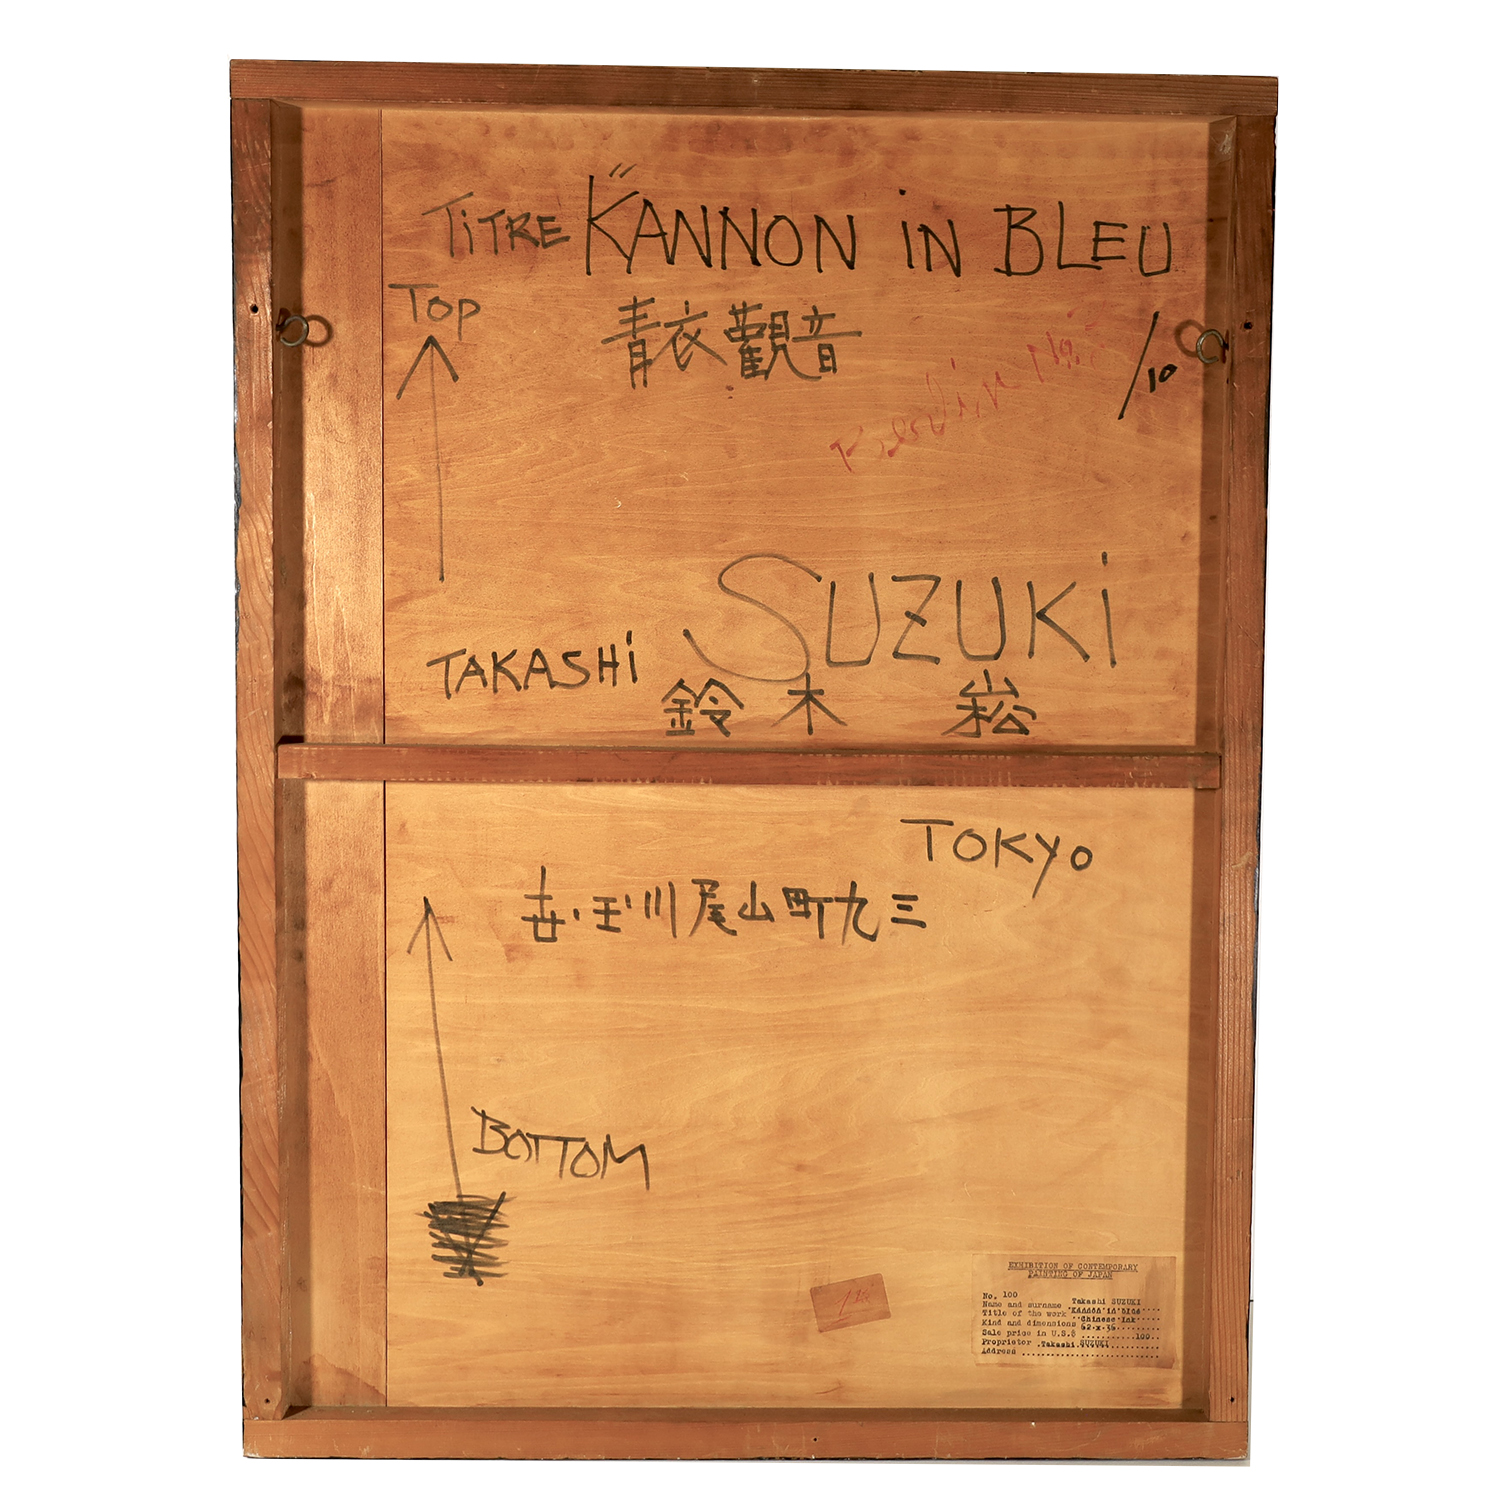 TiTRE "KANNON iN BLEU
TOP
青衣觀音
/10
SUZUKi
TAKASHi
鈴木 崧
TOKYO
世・玉川尾山町九三
BOTTOM
EXHIBITION OF CONTEMPORARY
PAINTING OF JAPAN
No. 100
Name and surname Takashi SUZUKI
Title of the work "Kannon in blue
Kind and dimensions Chinese Ink
62 x 36
Sale price in U.S.$ 100
Proprietor Takashi SUZUKI
Address